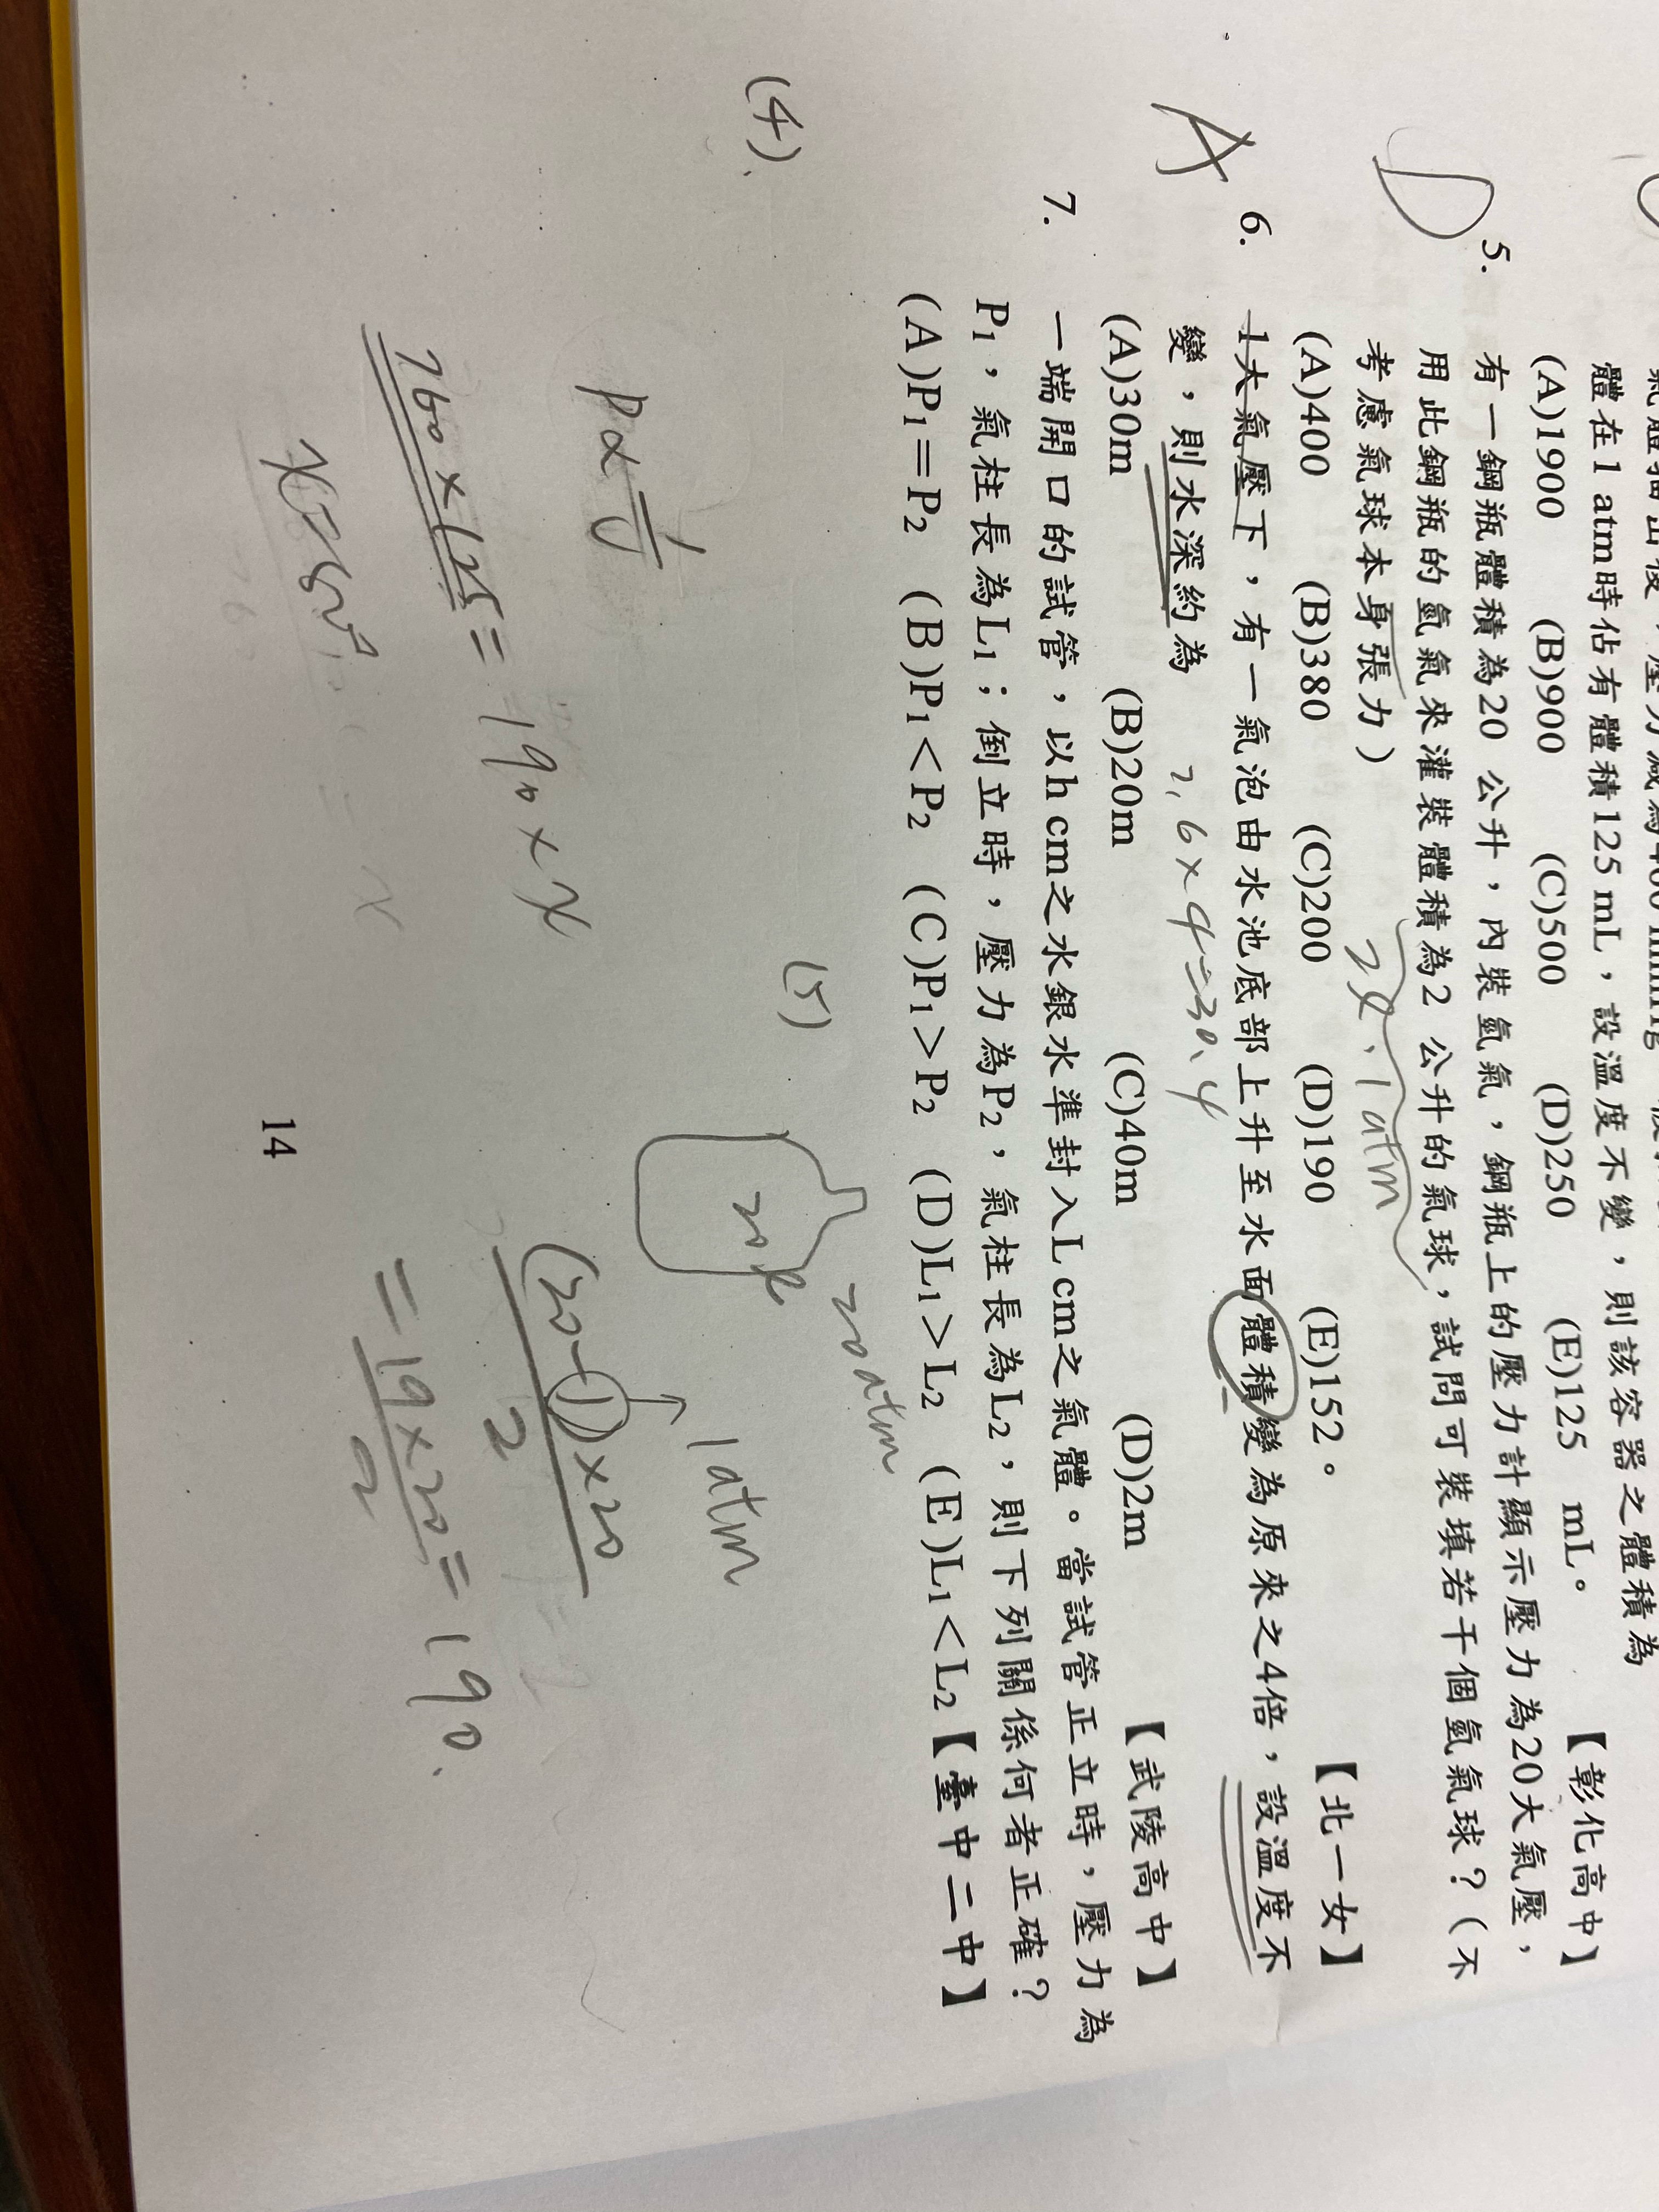 體在1 atm時佔有體積125 mL，設溫度不變，則該容器之體積為
(A)1900 (B)900 (C)500 (D)250 (E)125 mL。 【彰化高中】
D 5. 有一鋼瓶體積為20 公升，內裝氫氣，鋼瓶上的壓力計顯示壓力為20大氣壓，
用此鋼瓶的氫氣來灌裝體積為2 公升的氣球，試問可裝填若干個氫氣球？（不
考慮氣球本身張力）
(A)400 (B)380 (C)200 (D)190 (E)152。 【北一女】
A 6. 1大氣壓下，有一氣泡由水池底部上升至水面體積變為原來之4倍，設溫度不
變，則水深約為
(A)30m (B)20m (C)40m (D)2m 【武陵高中】
7. 一端開口的試管，以h cm之水銀水準封入L cm之氣體。當試管正立時，壓力為
P1，氣柱長為L1；倒立時，壓力為P2，氣柱長為L2，則下列關係何者正確？
(A)P1＝P2 (B)P1＜P2 (C)P1＞P2 (D)L1＞L2 (E)L1＜L2【臺中二中】
(4).
760 × 125 = 190 × x
(5)
20 atm
1 atm
(20-1)×20
2
= 19×20 = 190.
2
14